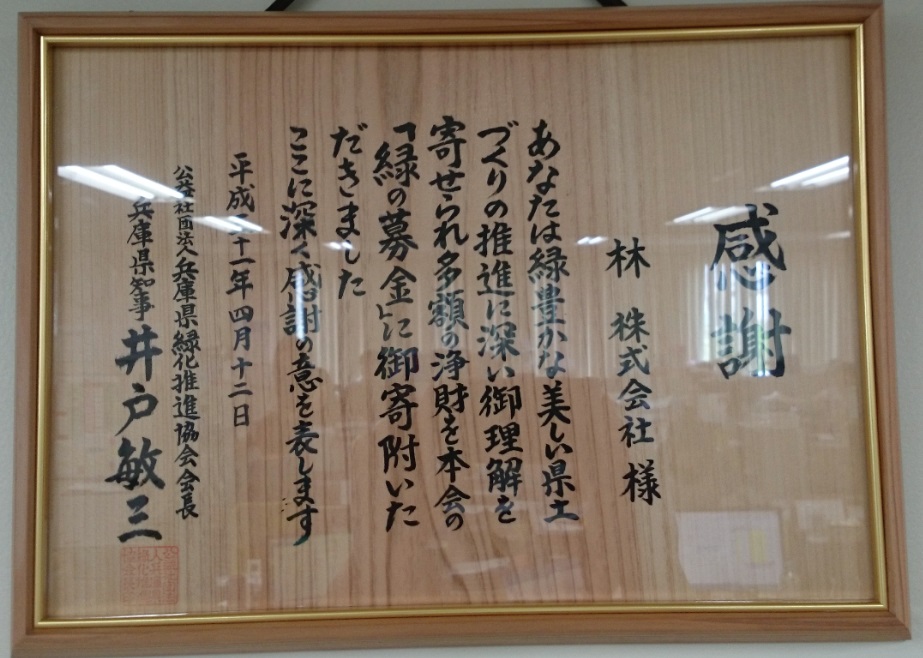 感謝
林 株式会社 様
あなたは緑豊かな美しい県土
づくりの推進に深い御理解を
寄せられ多額の浄財を本会の
「緑の募金」に御寄附いた
だきました
ここに深く感謝の意を表します
平成二十一年四月十二日
公益社団法人兵庫県緑化推進協会会長
兵庫県知事 井戸敏三